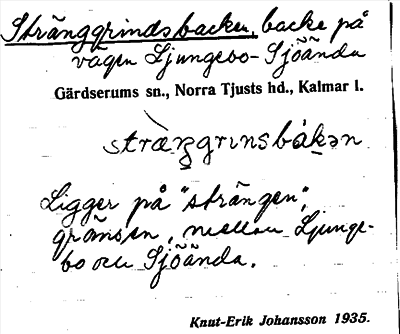 Stränggrindsbacken, backe på
vägen Ljungebo-Sjöända
Gärdserums sn., Norra Tjusts hd., Kalmar l.
Ligger på "strängen",
gränsen, mellan Ljunge-
bo och Sjöända.
Knut-Erik Johansson 1935.